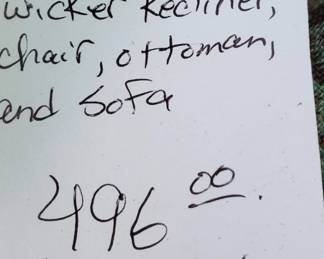 wicker Recliner,
chair, ottoman,
and Sofa
496 00.